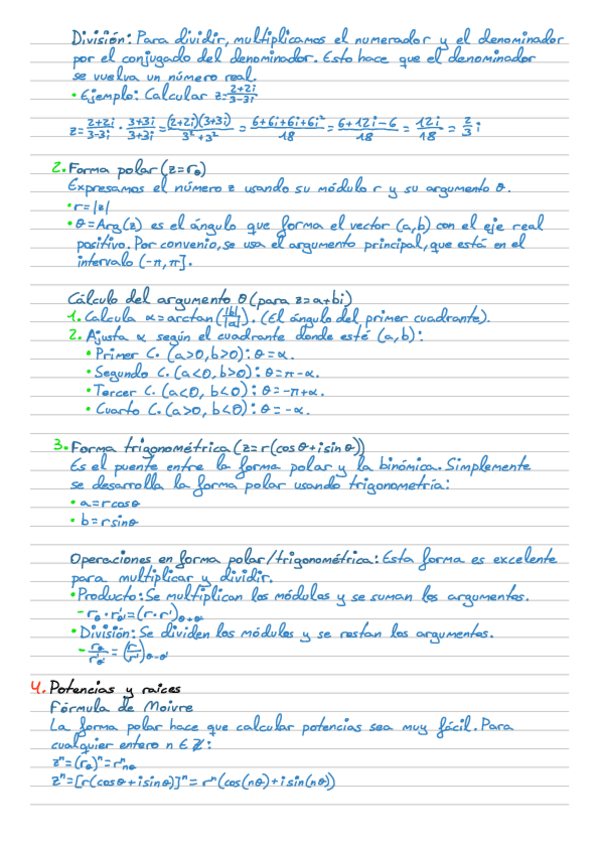 División: Para dividir, multiplicamos el numerador y el denominador
por el conjugado del denominador. Esto hace que el denominador
se vuelva un número real.
• Ejemplo: Calcular z=(2+2i)/(3-3i)
z=(2+2i)/(3-3i) · (3+3i)/(3+3i) = (2+2i)(3+3i)/(3²+3²) = (6+6i+6i+6i²)/18 = (6+12i-6)/18 = 12i/18 = 2/3 i
2. Forma polar (z=r_θ)
Expresamos el número z usando su módulo r y su argumento θ.
• r=|z|
• θ=Arg(z) es el ángulo que forma el vector (a,b) con el eje real
positivo. Por convenio, se usa el argumento principal, que está en el
intervalo (-π,π].
Cálculo del argumento θ (para z=a+bi)
1. Calcula α=arctan(|b|/|a|). (El ángulo del primer cuadrante).
2. Ajusta α según el cuadrante donde esté (a,b):
• Primer C. (a>0, b>0): θ=α.
• Segundo C. (a<0, b>0): θ=π-α.
• Tercer C. (a<0, b<0): θ=-π+α.
• Cuarto C. (a>0, b<0): θ=-α.
3. Forma trigonométrica (z=r(cosθ+isinθ))
Es el puente entre la forma polar y la binómica. Simplemente
se desarrolla la forma polar usando trigonometría:
• a=rcosθ
• b=rsinθ
Operaciones en forma polar/trigonométrica: Esta forma es excelente
para multiplicar y dividir.
• Producto: Se multiplican los módulos y se suman los argumentos.
- r_θ · r'_θ' = (r·r')_θ+θ'
• División: Se dividen los módulos y se restan los argumentos.
- r_θ/r'_θ' = (r/r')_θ-θ'
4. Potencias y raíces
Fórmula de Moivre
La forma polar hace que calcular potencias sea muy fácil. Para
cualquier entero n∈ℤ:
zⁿ=(r_θ)ⁿ=rⁿ_nθ
zⁿ=[r(cosθ+isinθ)]ⁿ=rⁿ(cos(nθ)+isin(nθ))